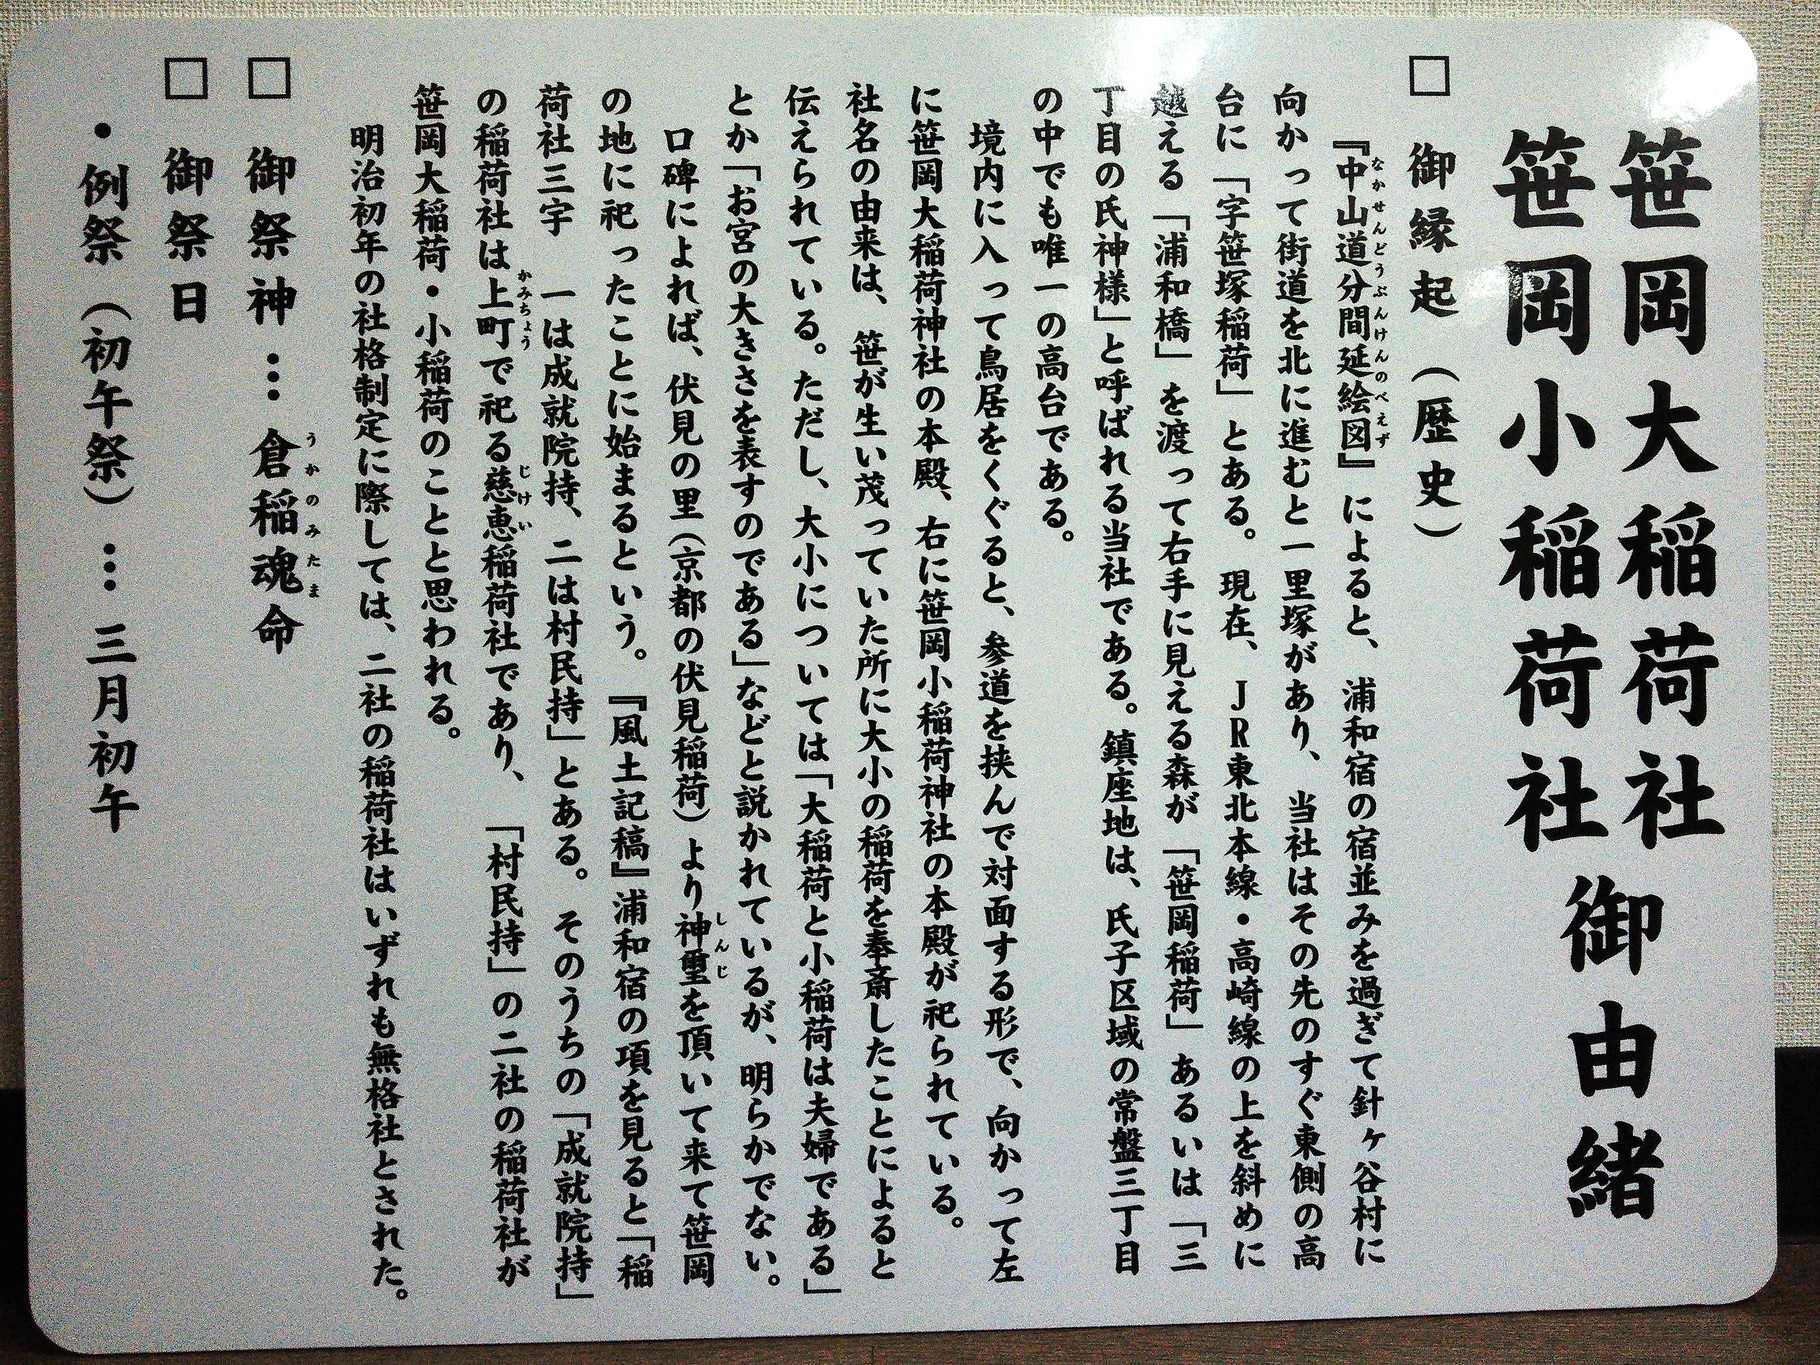 笹岡大稲荷社
笹岡小稲荷社
御由緒
□ 御縁起（歴史）
『中山道分間延絵図』によると、浦和宿の宿並みを過ぎて針ヶ谷村に
なかせんどうぶんけんのべえず
向かって街道を北に進むと一里塚があり、当社はその先のすぐ東側の高
台に「字笹塚稲荷」とある。現在、JR東北本線・高崎線の上を斜めに
越える「浦和橋」を渡って右手に見える森が「笹岡稲荷」あるいは「三
丁目の氏神様」と呼ばれる当社である。鎮座地は、氏子区域の常盤三丁目
の中でも唯一の高台である。
境内に入って鳥居をくぐると、参道を挟んで対面する形で、向かって左
に笹岡大稲荷神社の本殿、右に笹岡小稲荷神社の本殿が祀られている。
社名の由来は、笹が生い茂っていた所に大小の稲荷を奉斎したことによると
伝えられている。ただし、大小については「大稲荷と小稲荷は夫婦である」
とか「お宮の大きさを表すのである」などと説かれているが、明らかでない。
口碑によれば、伏見の里（京都の伏見稲荷）より神璽を頂いて来て笹岡
しんじ
の地に祀ったことに始まるという。『風土記稿』浦和宿の項を見ると「稲
荷社三宇　一は成就院持、二は村民持」とある。そのうちの「成就院持」
の稲荷社は上町で祀る慈恵稲荷社であり、「村民持」の二社の稲荷社が
かみちょう
じけい
笹岡大稲荷・小稲荷のことと思われる。
明治初年の社格制定に際しては、二社の稲荷社はいずれも無格社とされた。
□ 御祭神…倉稲魂命
うかのみたま
□ 御祭日
・例祭（初午祭）…三月初午